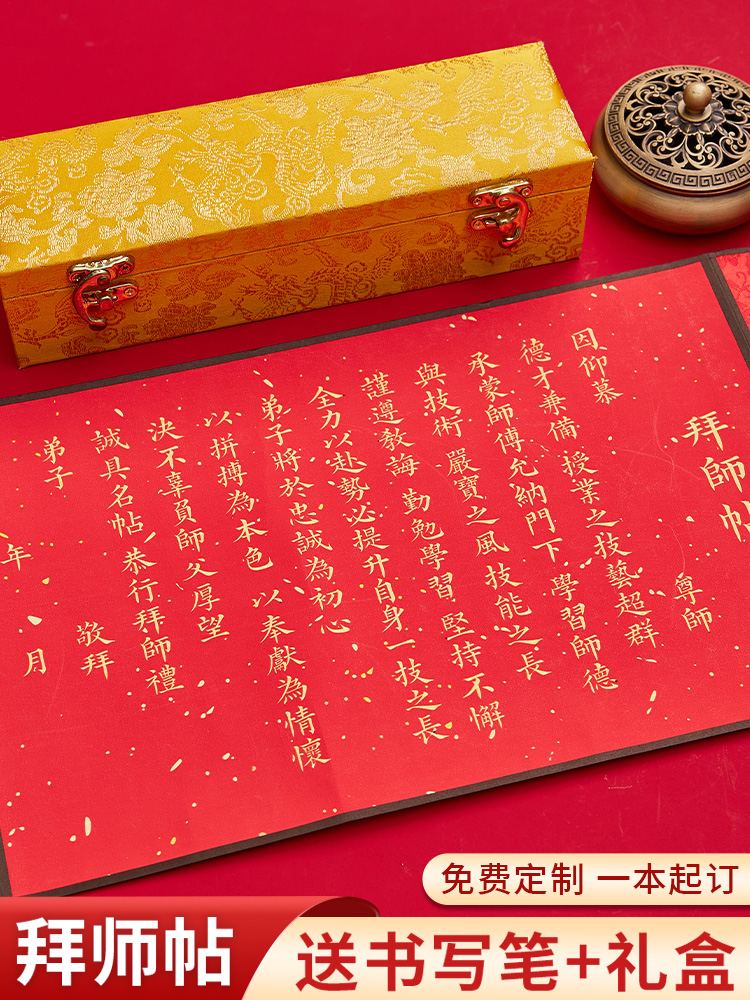 拜師帖
因仰慕 尊師
德才兼備 授業之技藝超群
承蒙師傅允納門下 學習師德
與技術 嚴寶之風技能之長
謹遵教誨 勤勉學習 堅持不懈
全力以赴勢必提升自身一技之長
弟子將於忠誠為初心
以拼搏為本色 以奉獻為情懷
決不辜負師父厚望
誠具名帖 恭行拜師禮
弟子 敬拜
年 月
免费定制 一本起订
拜师帖
送书写笔+礼盒